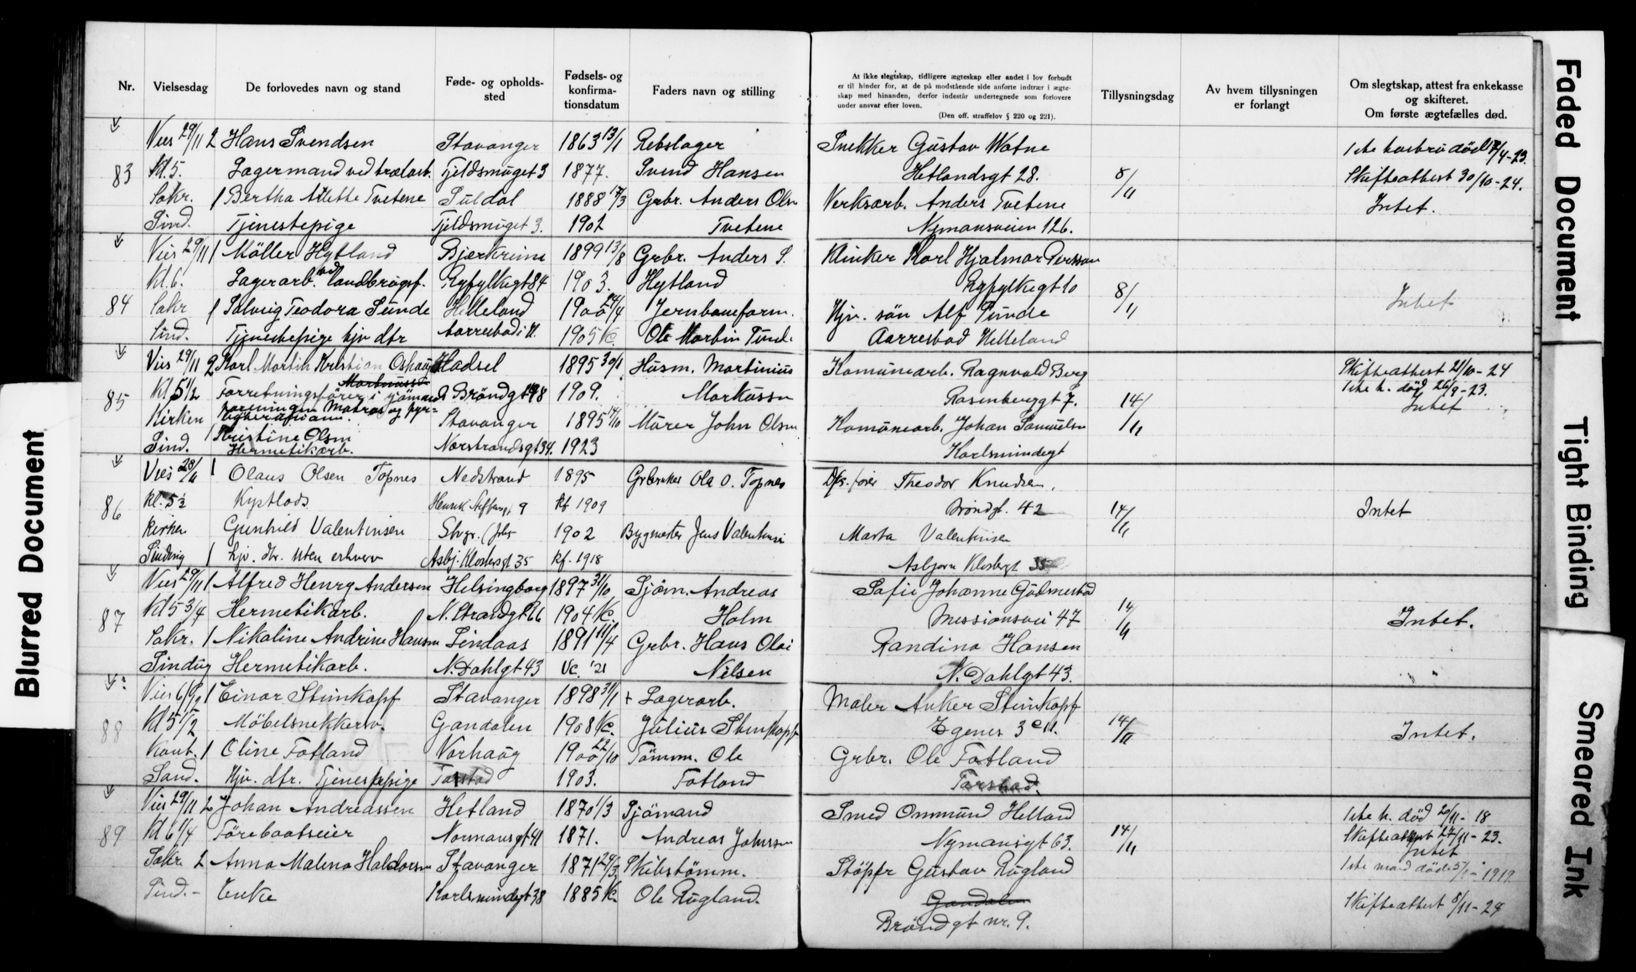 Nr.
Vielsesdag
De forlovedes navn og stand
Føde- og opholds-
sted
Fødsels- og
konfirma-
tionsdatum
Faders navn og stilling
At ikke slegtskap, tidligere ægteskap eller andet i lov forbudt
er til hinder for, at de på modstående side anførte indtrær i ægte-
skap med hinanden, derfor indestår undertegnede som forlovere
under ansvar efter loven.
(Den off. straffelov § 220 og 221).
Tillysningsdag
Av hvem tillysningen
er forlangt
Om slegtskap, attest fra enkekasse
og skifteret.
Om første ægtefælles død.
Vies 29/11 2 Hans Svendsen Stavanger 1863 13/1 Rebslager Snekker Gustav Watne
83 Kl. 5. Lagermand ved trælast. Fjeldsmuget 3 1877. Svend Hansen Hetlandsgt 28. 8/11 Skifteattest 30/10-24.
Sakr. 1 Bertha Tvetene Suldal 1888 17/3 Grbr. Anders Olsn Verksarb. Anders Tvetene Intet.
Sind. Tjenestepige Fjeldsmuget 3. 1902 Tvetene Nymansveien 126.
Vies 29/11 1 Møller Hytland Bjerkreim 1899 13/8 Grbr. Anders S. Klinker Karl Hjalmar Persson
84 Kl. 6. Lagerarb. ved Ryfylkegt 84 1903. Hytland Ryfylkegt 10 8/11
Sakr 1 Solveig Teodora Sunde Helleland 1900 Jernbaneform. Hjv. søn Alf Sunde Intet
Sind. Tjenestepige hjv dtr 1905 K. Ole Martin Sunde Aarrestad Helleland
Vies 29/11 2 Karl Martin Kristian Hadsel 1895 30/1 Husm. Martinius Komunearb. Ragnvald Berg Skifteattest 21/10-24
85 Kl 5 1/2 Forretningsfører i Brøndgt 148 1909. Markussn Rosenberggt 7. 14/11 1ste h. død 26/9-23.
Kirken Stavanger 1895 Murer John Olsen Komunearb. Johan Samuelsn Intet
Sind. 1 Kristine Olsen Norstrandsgt 34. 1923 Karlsmindegt
Hermetikarb.
Vies 1 Olaus Olsen Topnes Nedstrand 1895 Ole O. Topnes Theodor Knudsen.
86 Kl. 5 1/2 9 kf 1909 Brøndgt. 42 14/11 Intet
Kirken Gunhild Valentinsen 1902 Bygmester Jens Valentinsen Marta Valentinsen
Sinding 1 hjv. dtr. Uten erhverv Asbj. Klostersgt 35 kf. 1918 Asbjørn Klostergt 35
Vies 29/11 1 Alfred Henry Andersen Helsingborg 1897 31/10 Sjøm. Andreas Sofie Johanne
87 Kl 5 3/4 Hermetikarb. N. Strandgt 66 1904 K. Holm Missionsvei 47 14/11 Intet.
Sakr. 1 Nikoline Andrine Hansen Lindaas 1891 11/4 Grbr. Hans Olai Randina Hansen
Sinding Hermetikarb. N. Dahlgt 43 Vc. '21 Nelsen N. Dahlgt 43.
Vies 6/12 1 Einar Steinkopf Stavanger 1898 31/1 + Lagerarb. Maler Anker Steinkopf
88 Kl 5 1/2 Møbelsnekkersv. Gandalen 1908 K. Julius Steinkopf Egenes 14/11 Intet.
Kont. 1 Oline Fotland Varhaug 1900 22/10 Tømm. Ole Grbr. Ole Fotland
Sand. Hjv. dtr. Tjenestepige 1903. Fotland
Vies 29/11 2 Johan Andreassen Hetland 1870 1/3 Sjømand Smed Ommund Helland 1ste h. død 20/11-18
89 Kl 6 1/4 Førebaatseier Normansgt 41 1871. Andreas Johnssn Nymansgt 63. 14/11 Skifteattest 24/11-23.
Intet
Sakr. 2 Anna Malena Haldorsen Stavanger 1871 Skibstømm. Støper Gustav Rugland 1ste mand døde 5/1-1919
Sind. - Enke Karlsmindegt 38 1885 K. Ole Rugland. Gandalen Skifteattest 8/11-24
Brøndgt nr. 9.
Blurred Document
Faded Document
Tight Binding
Smeared Ink